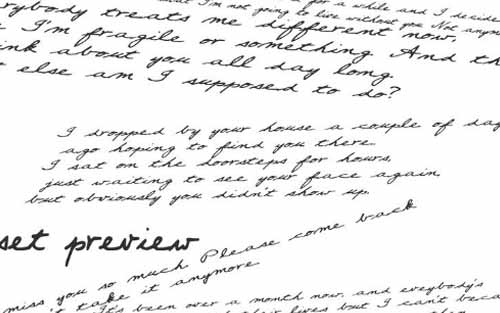 for a while and I decided
what I'm not going to live without you. Not anym
rybody treats me different now,
I'm fragile or something. And th
ink about you all day long.
else am I supposed to do?
I dropped by your house a couple of day
ago hoping to find you there.
I sat on the doorsteps for hours,
just waiting to see your face again
but obviously you didn't show up.
set preview
miss you so much Please come back
't take it anymore
It's been over a month now, and everybody's
their lives but I can't beca